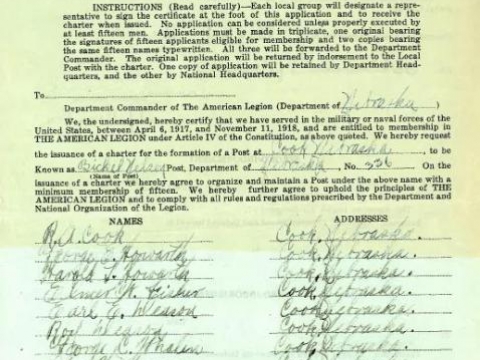 INSTRUCTIONS (Read carefully)—Each local group will designate a repre-
sentative to sign the certificate at the foot of this application and to receive the
charter when issued. No application can be considered unless properly executed by
at least fifteen men. Applications must be made in triplicate, one original bearing
the signatures of fifteen applicants eligible for membership and two copies bearing
the same fifteen names typewritten. All three will be forwarded to the Department
Commander. The original application will be returned by indorsement to the Local
Post with the charter. One copy of application will be retained by Department Head-
quarters, and the other by National Headquarters.
To
Department Commander of The American Legion (Department of Nebraska)
We, the undersigned, hereby certify that we have served in the military or naval forces of the
United States, between April 6, 1917, and November 11, 1918, and are entitled to membership in
THE AMERICAN LEGION under Article IV of the Constitution, as above quoted. We hereby request
the issuance of a charter for the formation of a Post at Cook Nebraska, to be
Known as Post, Department of Nebraska, No. 336 On the
(Name of Post)
issuance of a charter we hereby agree to organize and maintain a Post under the above name with a
minimum membership of fifteen. We hereby further agree to uphold the principles of THE
AMERICAN LEGION and to comply with all rules and regulations prescribed by the Department and
National Organization of the Legion.
NAMES ADDRESSES
R. A. Cook Cook, Nebraska.
George Cook, Nebraska.
Harold Cook, Nebraska.
Elmer Cook, Nebraska.
Earl Cook, Nebraska.
Roy Cook, Nebraska.
George C. Whalen Cook, Nebraska